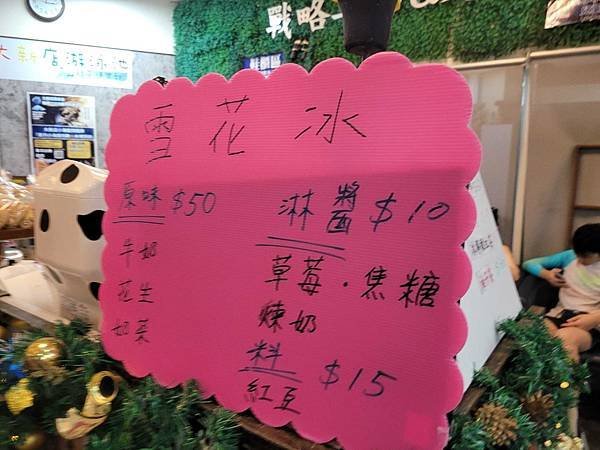 戰略
大新店游泳池
雪花冰
原味 $50
牛奶
花生
奶茶
淋醬 $10
草莓・焦糖
煉奶
料 $15
紅豆